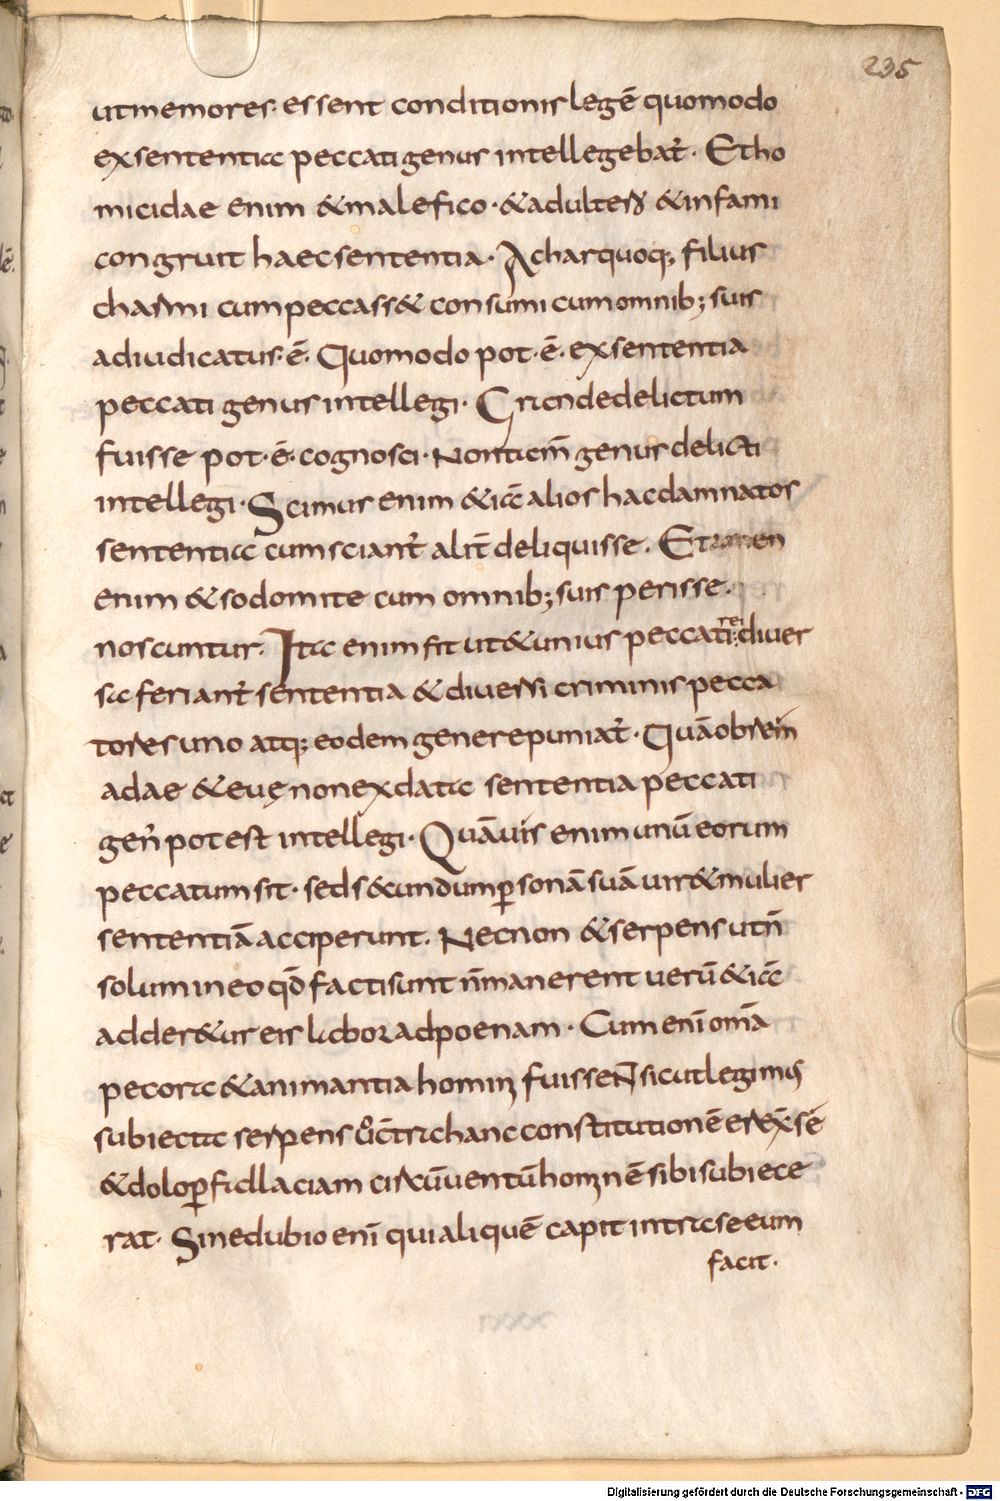 235
ut memores essent conditionis legē quomodo
ex sententia peccati genus intellegebat̄. Et ho
micidae enim & malefico · & adulter̄ & infami
congruit haec sententia. Achar quoq; filius
charmi cum peccass& consumi cum omnib; suis
adiudicatus · ē. Quomodo pot · ē. ex sententia
peccati genus intellegi. Grande delictum
fuisse pot · ē. cognosci. Non tam̄ genus delicti
intellegi. Scimus enim & iā alios hac damnatos
sententia cum sciant̄ alit̄ deliquisse. Etamen
enim & sodomite cum omnib; suis perisse.
noscuntur. Ita enim fit ut & unius peccati rei diuer
sa feriant̄ sententia & diuersi criminis pecca
tores uno atq; eodem genere puniat̄. Quāobrem
adae & euę non ex data sententia peccati
gen̄ potest intellegi. Quāuis enim unū eorum
peccatum sit · sed s&cundum ꝑsonā suā uir & mulier
sententiā acciperunt. Necnon & serpens ut n̄
solum in eo qđ facti sunt n̄ manerent uerū & iā
adder&ur eis labor ad poenam. Cum enī om̄a
pecora & animantia homin; fuissent sicut legimus
subiecta serpens ū cōtra hanc constitutionē erexsē
& dolo ꝑ fallaciam circūuentū hominē sibi subiece
rat. Sine dubio enī qui aliquē capit intra se eum
facit.
Digitalisierung gefördert durch die Deutsche Forschungsgemeinschaft - DFG